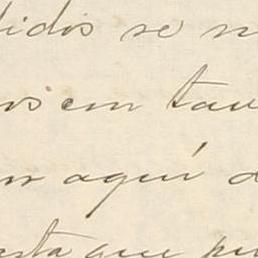 didos se n
ns em tau
m aqui d
sta que pu